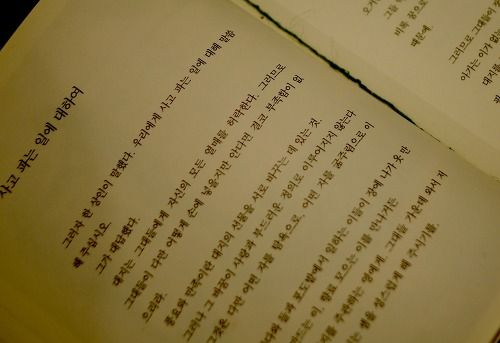 사고 파는 일에 대하여
그러자 한 상인이 말했다. 우리에게 사고 파는 일에 대해 말씀
해 주십시오.
그가 대답했다.
대지는 그대들에게 자신의 모든 열매를 허락한다. 그러므로
그대들이 다만 어떻게 손에 넣을지만 안다면 결코 부족함이 없
으리라.
풍요와 만족이란 대지의 선물을 서로 바꾸는 데 있는 것.
그러나 그 바꿈이 사랑과 부드러운 정의로 이루어지지 않는다
그것은 다만 어떤 자를 탐욕으로, 어떤 자를 굶주림으로 이
바다와 들과 포도밭에서 일하는 이들이 장에 나가 옷 만
만드는 이, 향료 모으는 이를 만나거든
주관하는 영에게, 그대들 가운데 와서 저
는 셈을 성스럽게 해 주시기를.
오거
그들
비록 꿈으로
때문에.
그러므로 그대들이
아가는 이가 없는
대지를